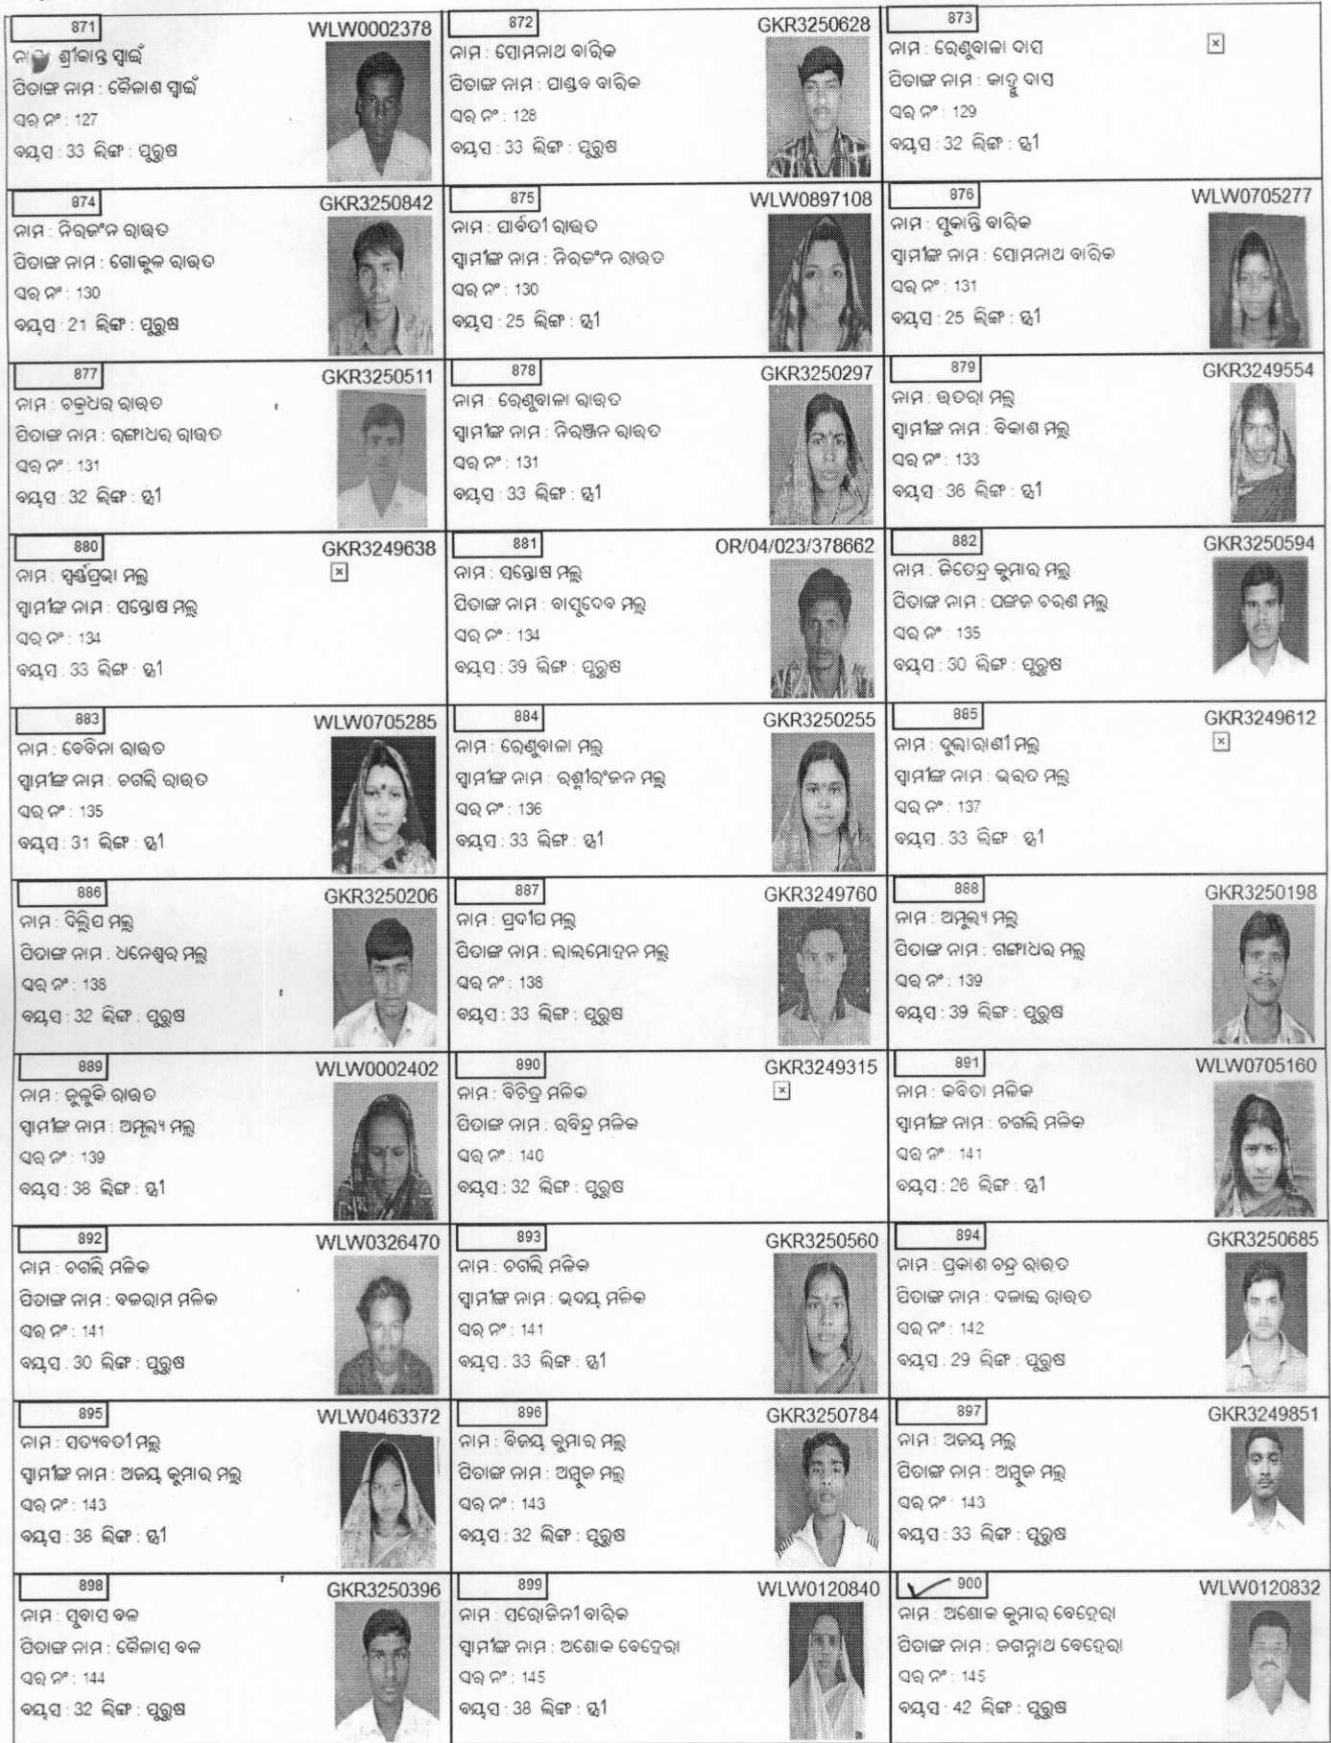 871 WLW0002378
ଶ୍ରୀକାନ୍ତ ସ୍ୱାଇଁ
ପିତାଙ୍କ ନାମ : କୈଳାଶ ସ୍ୱାଇଁ
ଘର ନଂ : 127
ବୟସ : 33 ଲିଙ୍ଗ : ପୁରୁଷ
872 GKR3250628
ନାମ : ସୋମନାଥ ବାରିକ
ପିତାଙ୍କ ନାମ : ପାଣ୍ଡବ ବାରିକ
ଘର ନଂ : 128
ବୟସ : 33 ଲିଙ୍ଗ : ପୁରୁଷ
873
ନାମ : ରେଣୁବାଳା ଦାସ
ପିତାଙ୍କ ନାମ : କାହ୍ନୁ ଦାସ
ଘର ନଂ : 129
ବୟସ : 32 ଲିଙ୍ଗ : ସ୍ତ୍ରୀ
874 GKR3250842
ନାମ : ନିରଜଂନ ରାଉତ
ପିତାଙ୍କ ନାମ : ଗୋକୁଳ ରାଉତ
ଘର ନଂ : 130
ବୟସ : 21 ଲିଙ୍ଗ : ପୁରୁଷ
875 WLW0897108
ନାମ : ପାର୍ବତୀ ରାଉତ
ସ୍ୱାମୀଙ୍କ ନାମ : ନିରଜଂନ ରାଉତ
ଘର ନଂ : 130
ବୟସ : 25 ଲିଙ୍ଗ : ସ୍ତ୍ରୀ
876 WLW0705277
ନାମ : ସୁକାନ୍ତି ବାରିକ
ସ୍ୱାମୀଙ୍କ ନାମ : ସୋମନାଥ ବାରିକ
ଘର ନଂ : 131
ବୟସ : 25 ଲିଙ୍ଗ : ସ୍ତ୍ରୀ
877 GKR3250511
ନାମ : ଚକ୍ରଧର ରାଉତ
ପିତାଙ୍କ ନାମ : ରଙ୍ଗାଧର ରାଉତ
ଘର ନଂ : 131
ବୟସ : 32 ଲିଙ୍ଗ : ସ୍ତ୍ରୀ
878 GKR3250297
ନାମ : ରେଣୁବାଳା ରାଉତ
ସ୍ୱାମୀଙ୍କ ନାମ : ନିରଞ୍ଜନ ରାଉତ
ଘର ନଂ : 131
ବୟସ : 33 ଲିଙ୍ଗ : ସ୍ତ୍ରୀ
879 GKR3249554
ନାମ : ଉତରା ମଲ୍ଲ
ସ୍ୱାମୀଙ୍କ ନାମ : ବିକାଶ ମଲ୍ଲ
ଘର ନଂ : 133
ବୟସ : 36 ଲିଙ୍ଗ : ସ୍ତ୍ରୀ
880 GKR3249638
ନାମ : ସ୍ୱର୍ଣ୍ଣପ୍ରଭା ମଲ୍ଲ
ସ୍ୱାମୀଙ୍କ ନାମ : ସନ୍ତୋଷ ମଲ୍ଲ
ଘର ନଂ : 134
ବୟସ : 33 ଲିଙ୍ଗ : ସ୍ତ୍ରୀ
881 OR/04/023/378662
ନାମ : ସନ୍ତୋଷ ମଲ୍ଲ
ପିତାଙ୍କ ନାମ : ବାସୁଦେବ ମଲ୍ଲ
ଘର ନଂ : 134
ବୟସ : 39 ଲିଙ୍ଗ : ପୁରୁଷ
882 GKR3250594
ନାମ : ଜିତେନ୍ଦ୍ର କୁମାର ମଲ୍ଲ
ପିତାଙ୍କ ନାମ : ପଙ୍କଜ ଚରଣ ମଲ୍ଲ
ଘର ନଂ : 135
ବୟସ : 30 ଲିଙ୍ଗ : ପୁରୁଷ
883 WLW0705285
ନାମ : ବେବିନା ରାଉତ
ସ୍ୱାମୀଙ୍କ ନାମ : ଚଗଲି ରାଉତ
ଘର ନଂ : 135
ବୟସ : 31 ଲିଙ୍ଗ : ସ୍ତ୍ରୀ
884 GKR3250255
ନାମ : ରେଣୁବାଳା ମଲ୍ଲ
ସ୍ୱାମୀଙ୍କ ନାମ : ରଶ୍ମୀରଂଜନ ମଲ୍ଲ
ଘର ନଂ : 136
ବୟସ : 33 ଲିଙ୍ଗ : ସ୍ତ୍ରୀ
885 GKR3249612
ନାମ : ଦୁଲାରାଣୀ ମଲ୍ଲ
ସ୍ୱାମୀଙ୍କ ନାମ : ଭରତ ମଲ୍ଲ
ଘର ନଂ : 137
ବୟସ : 33 ଲିଙ୍ଗ : ସ୍ତ୍ରୀ
886 GKR3250206
ନାମ : ଦିଲ୍ଲିପ ମଲ୍ଲ
ପିତାଙ୍କ ନାମ : ଧନେଶ୍ୱର ମଲ୍ଲ
ଘର ନଂ : 138
ବୟସ : 32 ଲିଙ୍ଗ : ପୁରୁଷ
887 GKR3249760
ନାମ : ପ୍ରଦୀପ ମଲ୍ଲ
ପିତାଙ୍କ ନାମ : ଲାଲମୋହନ ମଲ୍ଲ
ଘର ନଂ : 138
ବୟସ : 33 ଲିଙ୍ଗ : ପୁରୁଷ
888 GKR3250198
ନାମ : ଅମୁଲ୍ୟ ମଲ୍ଲ
ପିତାଙ୍କ ନାମ : ଗଙ୍ଗାଧର ମଲ୍ଲ
ଘର ନଂ : 139
ବୟସ : 39 ଲିଙ୍ଗ : ପୁରୁଷ
889 WLW0002402
ନାମ : ଜୁଳୁକି ରାଉତ
ସ୍ୱାମୀଙ୍କ ନାମ : ଅମୂଲ୍ୟ ମଲ୍ଲ
ଘର ନଂ : 139
ବୟସ : 38 ଲିଙ୍ଗ : ସ୍ତ୍ରୀ
890 GKR3249315
ନାମ : ବିଚିତ୍ର ମଳିକ
ପିତାଙ୍କ ନାମ : ରବିନ୍ଦ୍ର ମଳିକ
ଘର ନଂ : 140
ବୟସ : 32 ଲିଙ୍ଗ : ପୁରୁଷ
891 WLW0705160
ନାମ : କବିତା ମଳିକ
ସ୍ୱାମୀଙ୍କ ନାମ : ଚଗଲି ମଳିକ
ଘର ନଂ : 141
ବୟସ : 26 ଲିଙ୍ଗ : ସ୍ତ୍ରୀ
892 WLW0326470
ନାମ : ଚଗଲି ମଳିକ
ପିତାଙ୍କ ନାମ : ବଳରାମ ମଳିକ
ଘର ନଂ : 141
ବୟସ : 30 ଲିଙ୍ଗ : ପୁରୁଷ
893 GKR3250560
ନାମ : ଚଗଲି ମଳିକ
ସ୍ୱାମୀଙ୍କ ନାମ : ଉଦୟ ମଳିକ
ଘର ନଂ : 141
ବୟସ : 33 ଲିଙ୍ଗ : ସ୍ତ୍ରୀ
894 GKR3250685
ନାମ : ପ୍ରକାଶ ଚନ୍ଦ୍ର ରାଉତ
ପିତାଙ୍କ ନାମ : ଦଳାଇ ରାଉତ
ଘର ନଂ : 142
ବୟସ : 29 ଲିଙ୍ଗ : ପୁରୁଷ
895 WLW0463372
ନାମ : ସତ୍ୟବତୀ ମଲ୍ଲ
ସ୍ୱାମୀଙ୍କ ନାମ : ଅଜୟ କୁମାର ମଲ୍ଲ
ଘର ନଂ : 143
ବୟସ : 38 ଲିଙ୍ଗ : ସ୍ତ୍ରୀ
896 GKR3250784
ନାମ : ବିଜୟ କୁମାର ମଲ୍ଲ
ପିତାଙ୍କ ନାମ : ଅମ୍ବୁଜ ମଲ୍ଲ
ଘର ନଂ : 143
ବୟସ : 32 ଲିଙ୍ଗ : ପୁରୁଷ
897 GKR3249851
ନାମ : ଅଜୟ ମଲ୍ଲ
ପିତାଙ୍କ ନାମ : ଅମ୍ବୁଜ ମଲ୍ଲ
ଘର ନଂ : 143
ବୟସ : 33 ଲିଙ୍ଗ : ପୁରୁଷ
898 GKR3250396
ନାମ : ସୁବାସ ବଳ
ପିତାଙ୍କ ନାମ : କୈଳାସ ବଳ
ଘର ନଂ : 144
ବୟସ : 32 ଲିଙ୍ଗ : ପୁରୁଷ
899 WLW0120840
ନାମ : ସରୋଜିନୀ ବାରିକ
ସ୍ୱାମୀଙ୍କ ନାମ : ଅଶୋକ ବେହେରା
ଘର ନଂ : 145
ବୟସ : 38 ଲିଙ୍ଗ : ସ୍ତ୍ରୀ
900 WLW0120832
ନାମ : ଅଶୋକ କୁମାର ବେହେରା
ପିତାଙ୍କ ନାମ : ଜଗନ୍ନାଥ ବେହେରା
ଘର ନଂ : 145
ବୟସ : 42 ଲିଙ୍ଗ : ପୁରୁଷ